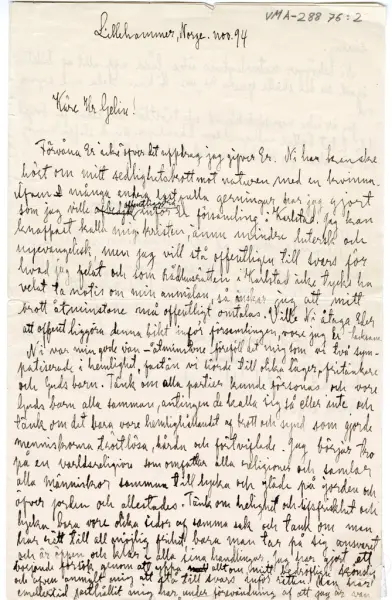 VMA-288 76:2
Lillehammer, Norge. nov. 94
Käre Hr. Gelin!
Förvåna Er icke öfver det uppdrag jag gifver Er. Ni har kanske
hört om mitt sedlighetsbrott mot naturen med en kvinna.
Äfven många andra galna gerningar har jag gjort
som jag ville offentligt inför församling i Karlstad. Jag kan
knappast kalla mig kristen, ännu mindre luthersk och
nyevangelisk, men jag vill stå offentligen till svars för
hvad jag felat och som Rådhusrätten i Karlstad icke tycks ha
velat ta notis om min anmälan, så önskar jag att mitt
brott åtminstone må offentligt omtalas. Ville Ni åtaga Eder
att offentliggöra denna bikt inför församlingen, vore jag Er tacksam.
Ni var min gode vän – åtminstone föreföll det mig som vi två sym-
patiserade i hemlighet, fastän vi hörde till olika läger, fritänkare
och Guds barn. Tänk om alla partier kunde försonas och vore
Guds barn alla samman, antingen de kalla sig så eller inte och
tänk om det bara vore hemlighet och brott och synd som gjorde
menniskorna trolösa, hårda och förtviflade. Jag börjar tro
på en verldsreligion som omfattar alla religioner och samlar
alla människor samman till lycka och glädje på jorden och
öfver jorden och allestädes. Tänk om helighet och lifsfriskhet och
lycka bara vore olika sidor af samma sak och tänk om man
har rätt till all möjlig frihet bara man tar på sig ansvaret
och är öppen och klar i alla sina handlingar. Jag har gjort ett
försök genom att allt om mitt
och äfven anmält mig att stå till svars inför rätten. Den har
emellertid under förevändning af att jag är